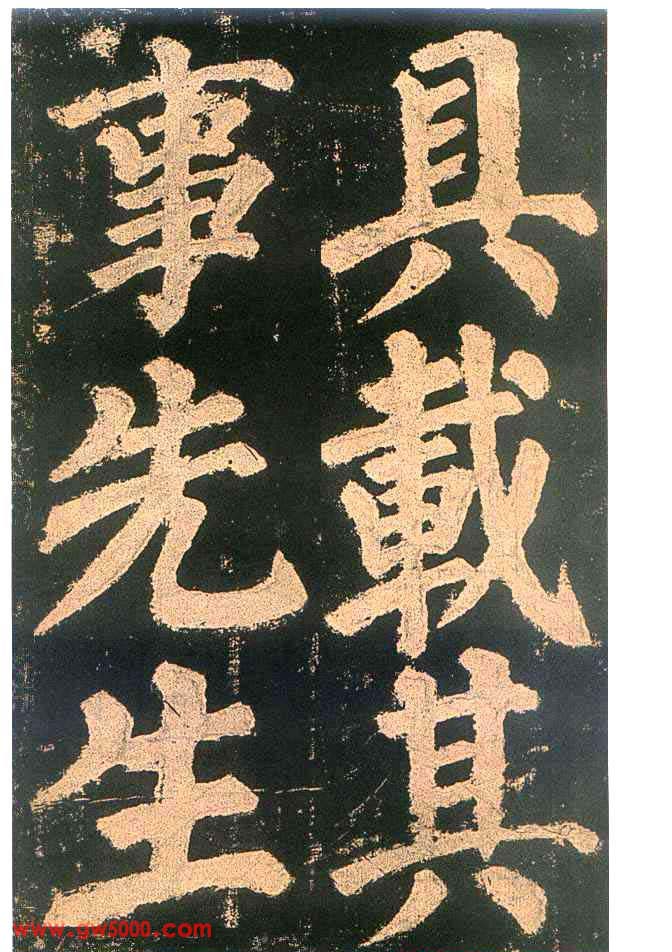 具載其
事先生
www.gw5000.com